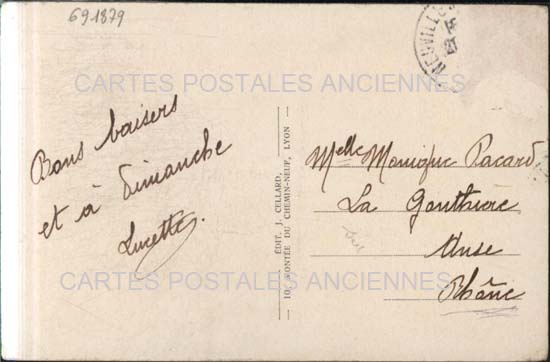 69.1879
NEUVILLE
CARTES POSTALES ANCIENNES
Bons baisers
et à dimanche
Lucette.
ÉDIT. J. CELLARD,
10, MONTÉE DU CHEMIN-NEUF, LYON
Melle Monique Pacard
La Gonthière
Anse
Rhône
CARTES POSTALES ANCIENNES